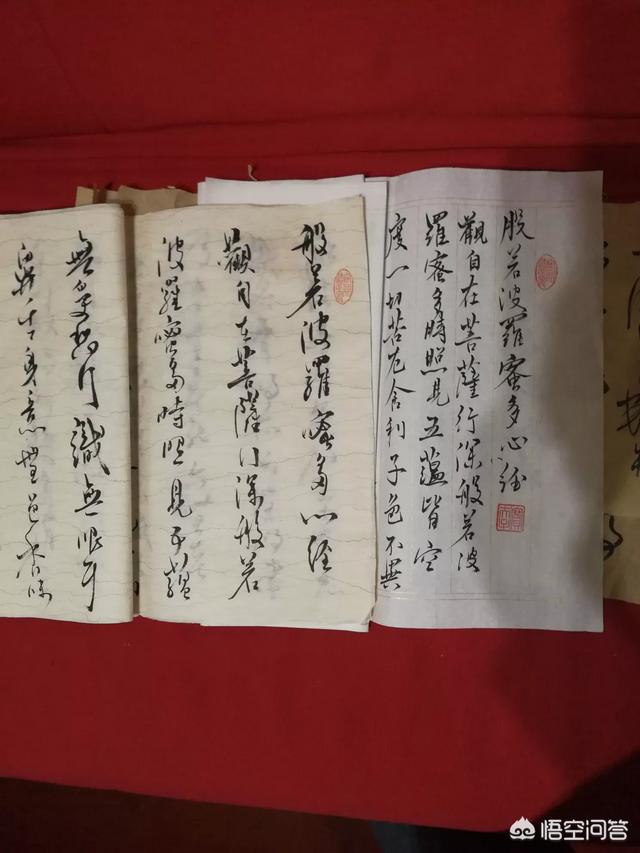 般若波羅蜜多心经
觀自在菩薩行深般若波
羅蜜多時照見五蘊皆空
度一切苦厄舍利子色不異
般若波羅蜜多心經
觀自在菩薩行深般若
波羅蜜多時照見五蘊
無受想行識無眼耳
鼻舌身意無色聲香味
悟空问答